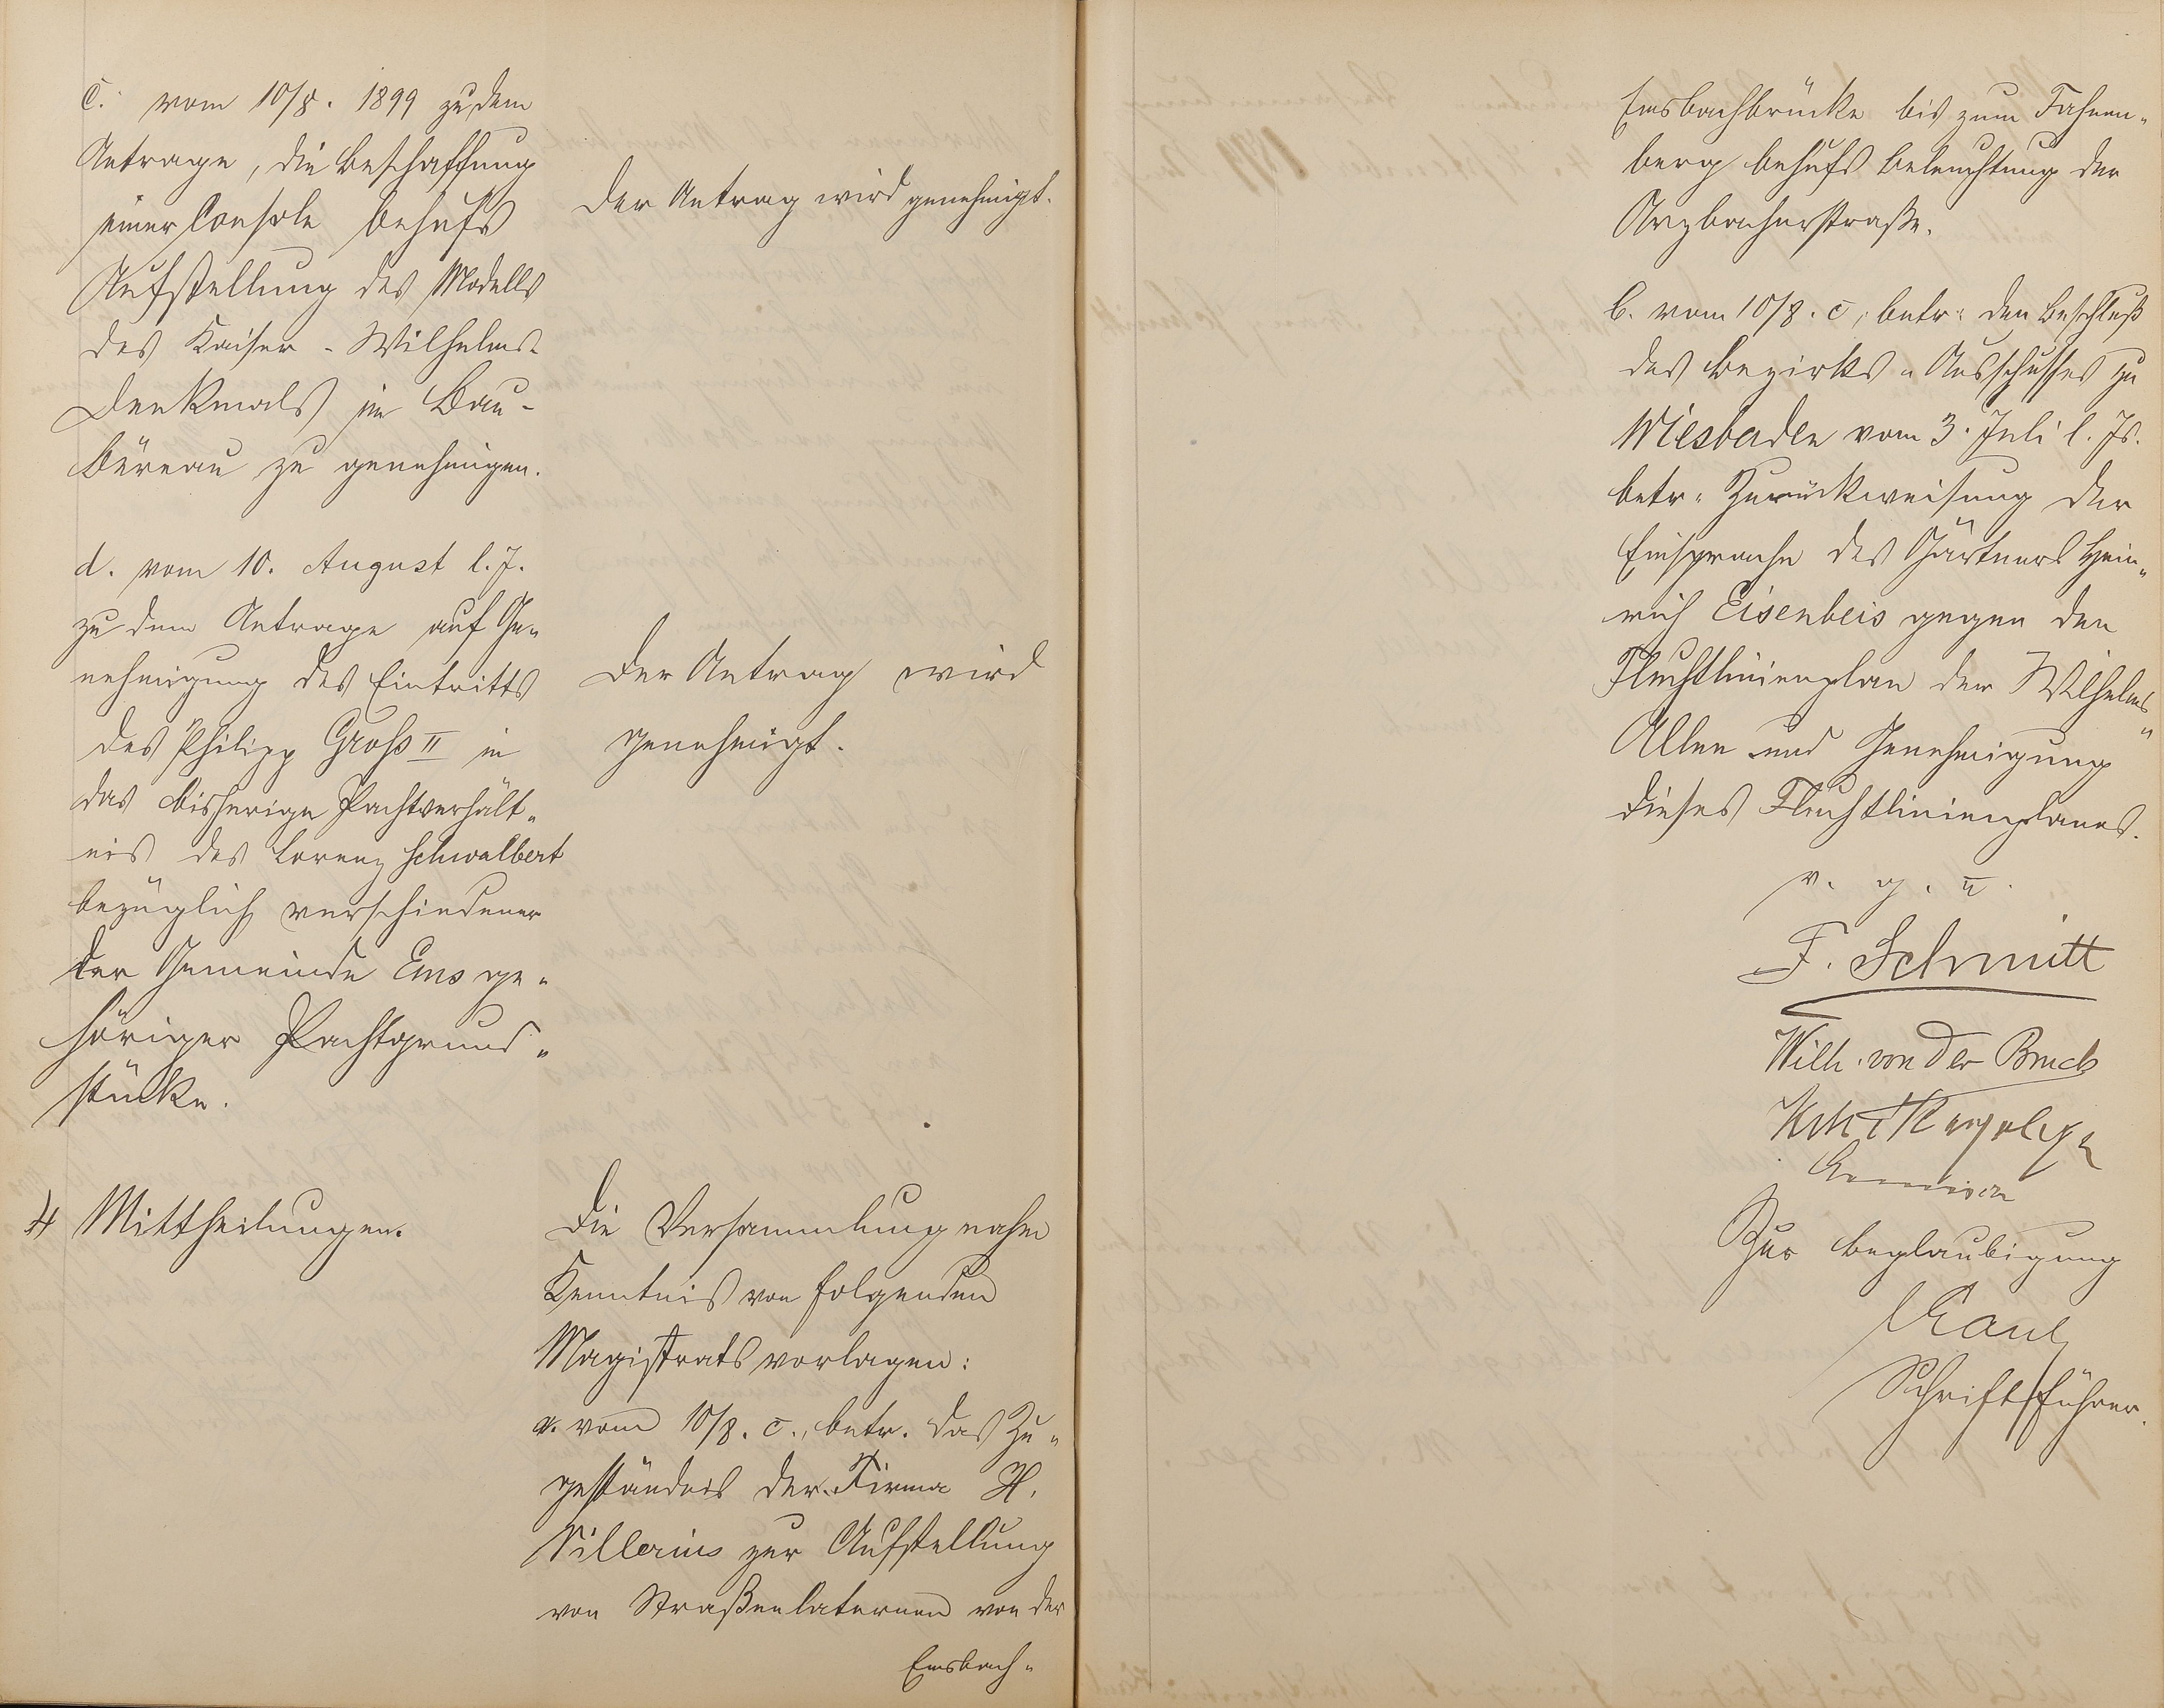 c. vom 10/8. 1899 zu dem
Antrage, die Beschaffung
einer Console behufs
Aufstellung des Modells
des Kaiser-Wilhelms-
Denkmals im Bau-
büreau zu genehmigen.
Der Antrag wird genehmigt.
d. vom 10. August l. J.
zu dem Antrage auf Ge-
nehmigung des Eintritts
des Philipp Groß II in
das bisherige Pachtverhält-
nis des Lorenz Schwalbert
bezüglich verschiedener
der Gemeinde Ems ge-
höriger Pachtgrund-
stücke.
Der Antrag wird
genehmigt.
4) Mittheilungen.
Die Versammlung nahm
Kenntnis von folgenden
Magistratsvorlagen:
a. vom 10/8. c., betr. das Zu-
geständnis der Firma H.
zur Aufstellung
von Straßenlaternen von der
Emsbach-
Emsbachbrücke bis zum Fahnen-
berg behufs Beleuchtung der
Arzbacherstraße.
b. vom 10/8. c, betr. den Beschluß
des Bezirks-Ausschusses zu
Wiesbaden vom 3. Juli l. Js.
betr. Zurückweisung der
Einsprache des Gärtners Hein-
rich Eisenbeis gegen den
Fluchtlinienplan der Wilhelms-
Allee und Genehmigung
dieses Fluchtlinienplanes.
v. g. u.
F. Schmitt
Wilh. von der Bruck
Zur Beglaubigung
Kaul
Schriftführer.